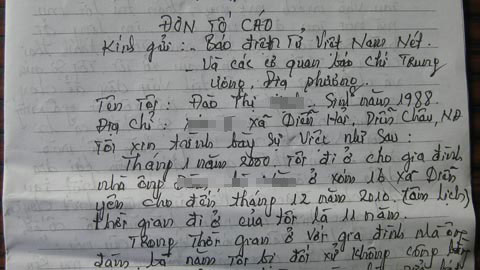 ĐƠN TỐ CÁO
Kính gửi: - Báo điện Tử Việt Nam Nét.
- Và các cơ quan báo chí Trung
ương, Địa phương.
Tên Tôi: Đào Thị Sinh năm 1988.
Địa chỉ: xã Diễn Hải, Diễn Châu, NA
Tôi xin trình bày sự việc như sau:
Tháng 1 năm 2000, tôi đi ở cho gia đình
nhà ông ở xóm 16 xã Diễn
yên cho đến tháng 12 năm 2010. (âm lịch)
thời gian đi ở của tôi là 11 năm.
Trong thời gian ở với gia đình nhà ông
năm tôi bị đối xử không công